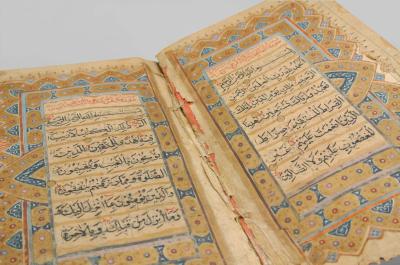 بسم الله الرحمن الرحيم
الحمد لله رب العالمين
الرحمن الرحيم مالك يوم الدين
اياك نعبد واياك نستعين
اهدنا الصراط المستقيم صراط
الذين انعمت عليهم غير
المغضوب عليهم ولا الضالين
بسم الله الرحمن الرحيم
الم ذلك الكتاب لا ريب
فيه هدى للمتقين الذين
يؤمنون بالغيب ويقيمون
الصلوة ومما رزقناهم ينفقون
والذين يؤمنون بما انزل اليك
وما انزل من قبلك وبالاخرة